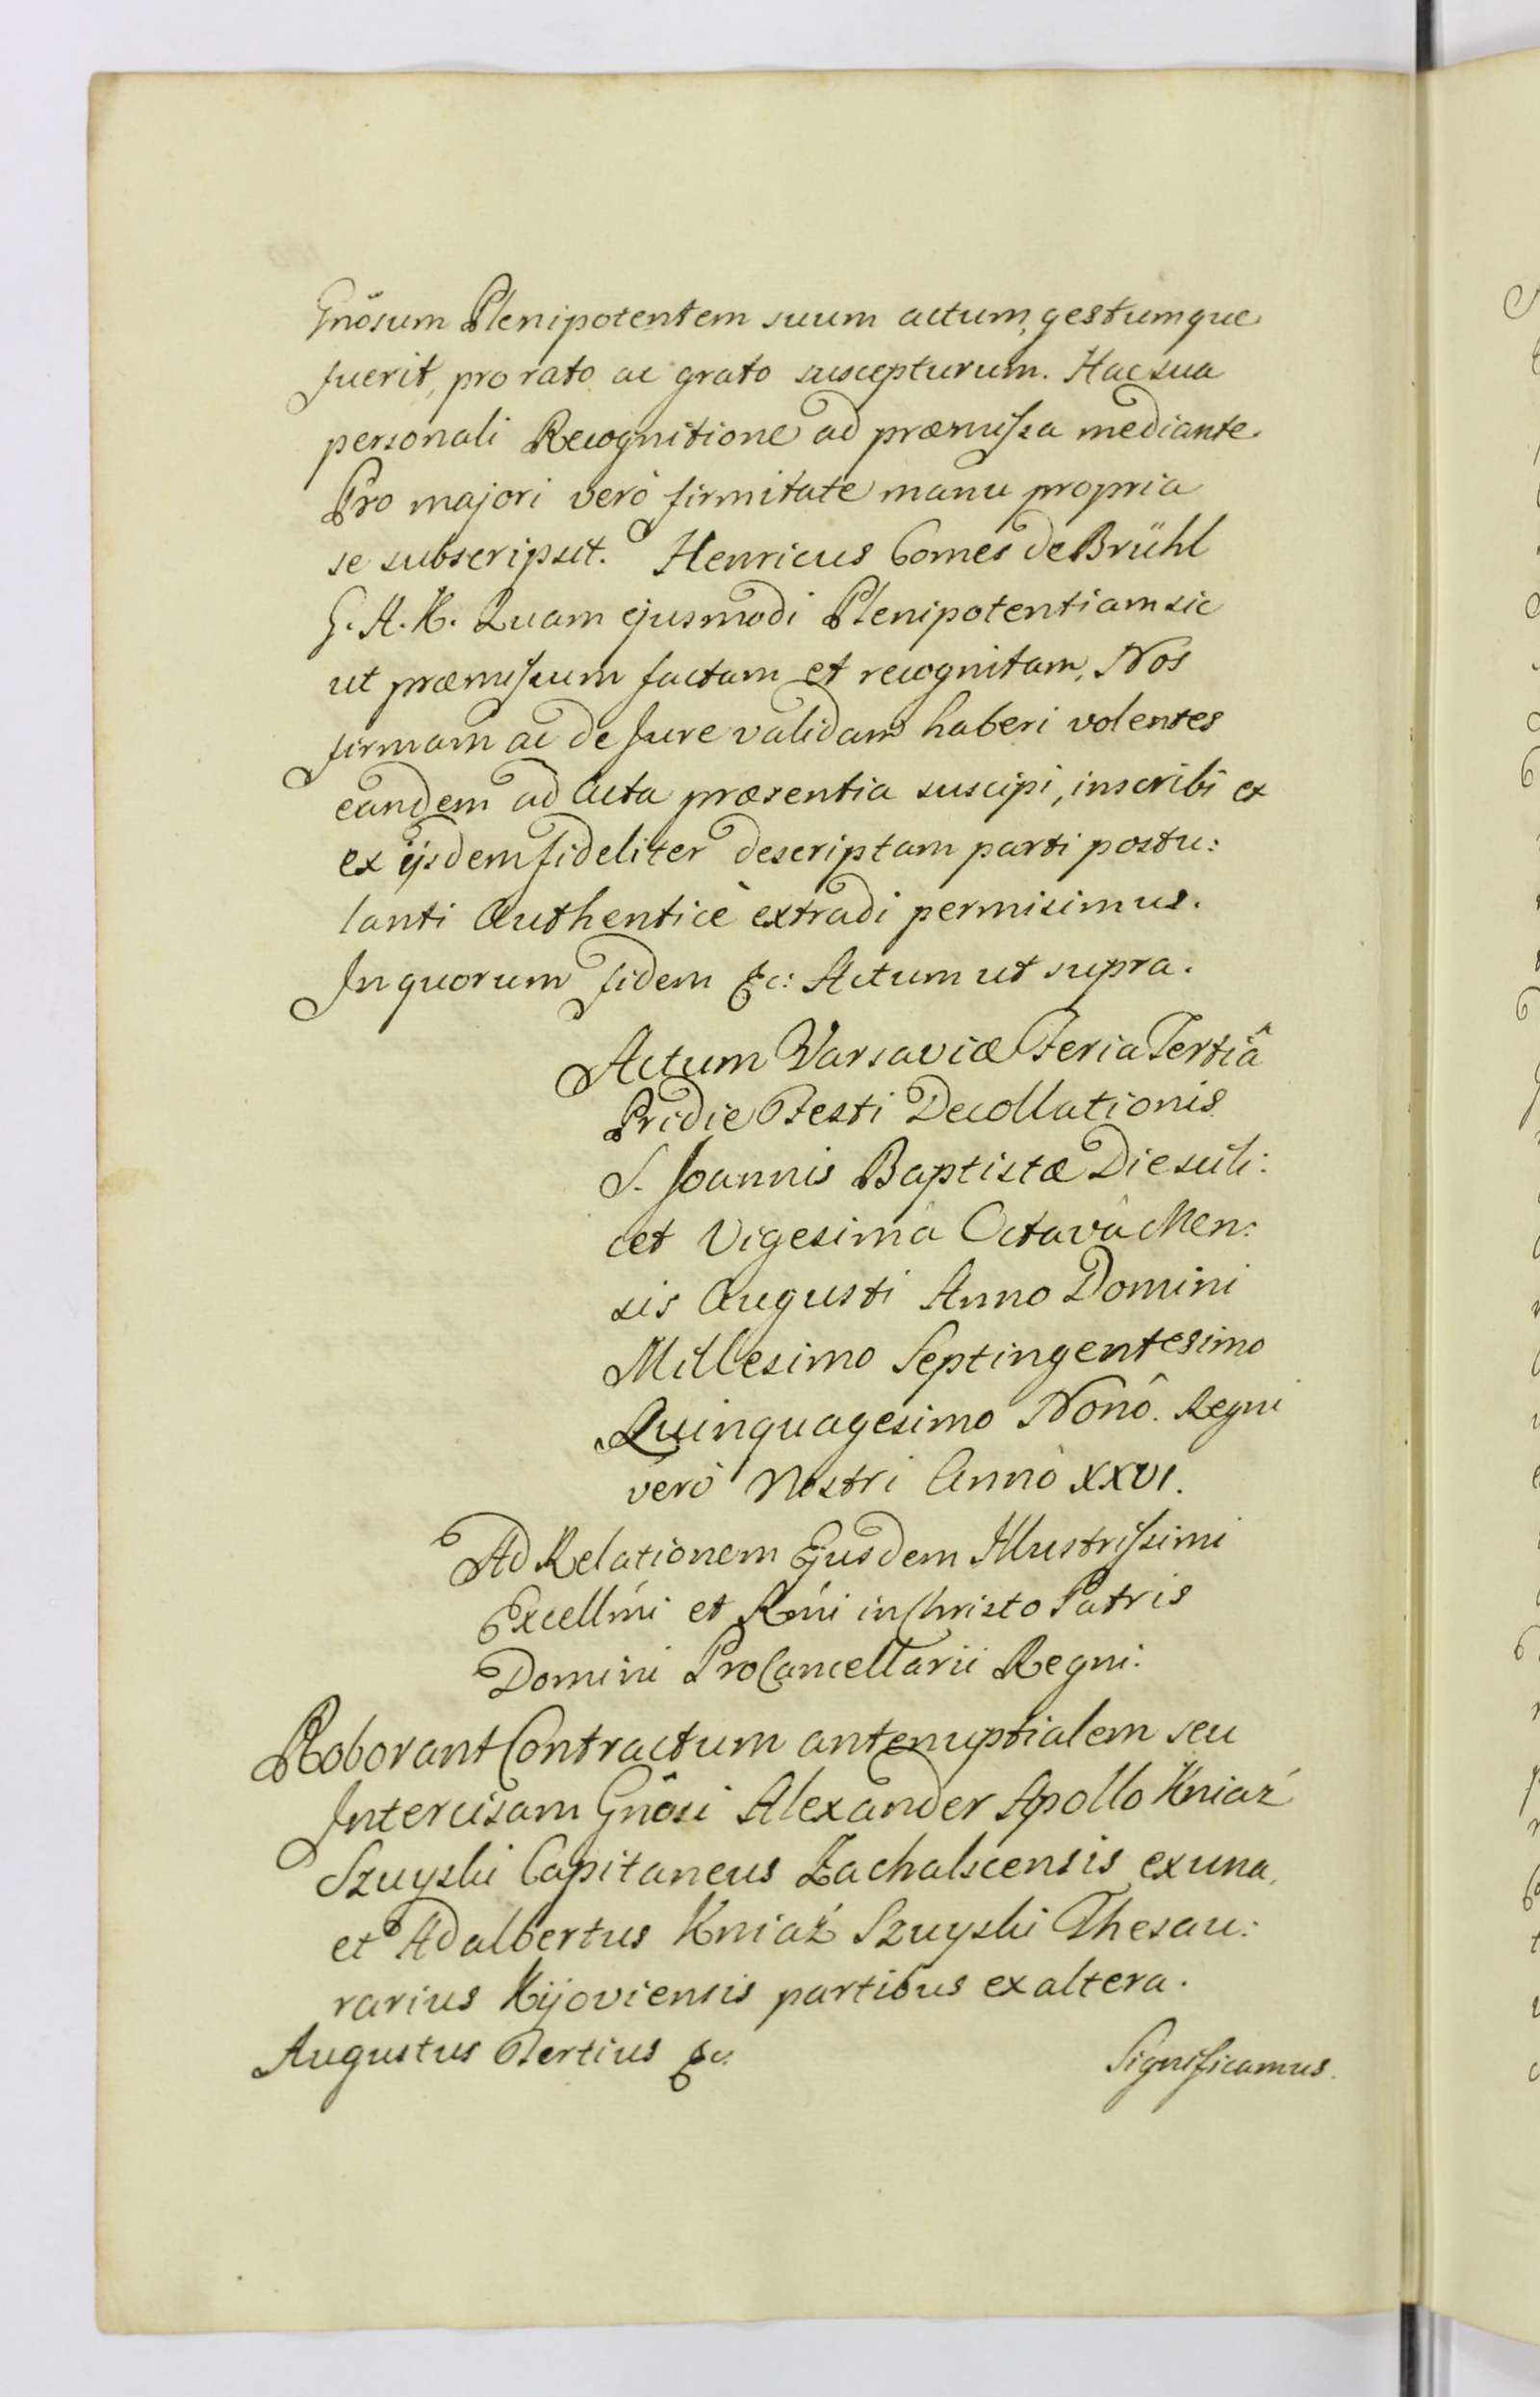 Gnõsum Plenipotentem suum actum, gestumque
fuerit, pro rato ac grato suscepturum. Hac sua
personali Recognitione ad præmissa mediante.
Pro majori verò firmitate manu propria
se subscripsit. Henricus Comes de Brühl
G. A. K. Quam ejusmodi Plenipotentiam sic
ut præmissum factam et recognitam, Nos
firmam ac de Jure validam haberi volentes
eandem ad Acta præsentia suscipi, inscribi et
ex ijsdem fideliter descriptam parti postu:
lanti Authenticè extradi permisimus.
In quorum fidem &c: Actum ut supra.
Actum Varsaviæ Feria Tertiâ
Pridie Festi Decollationis
S. Joannis Baptistæ Die scili:
cet Vigesimâ Octavâ Men:
sis Augusti Anno Domini
Millesimo Septingentesimo
Quinquagesimo Nonô. Regni
verò Nostri Annô XXVI.
Ad Relationem Ejusdem Illustrissimi
Excellm̃i et Rm̃i in Christo Patris
Domini ProCancellarii Regni:
Roborant Contractum antenuptialem seu
Intercisam Gnõsi Alexander Apollo Kniaź
Szuyski Capitaneus Zachalscensis ex una,
et Adalbertus Kniaź Szuyski Thesau:
rarius Kijoviensis partibus ex altera.
Augustus Tertius &c. Significamus.